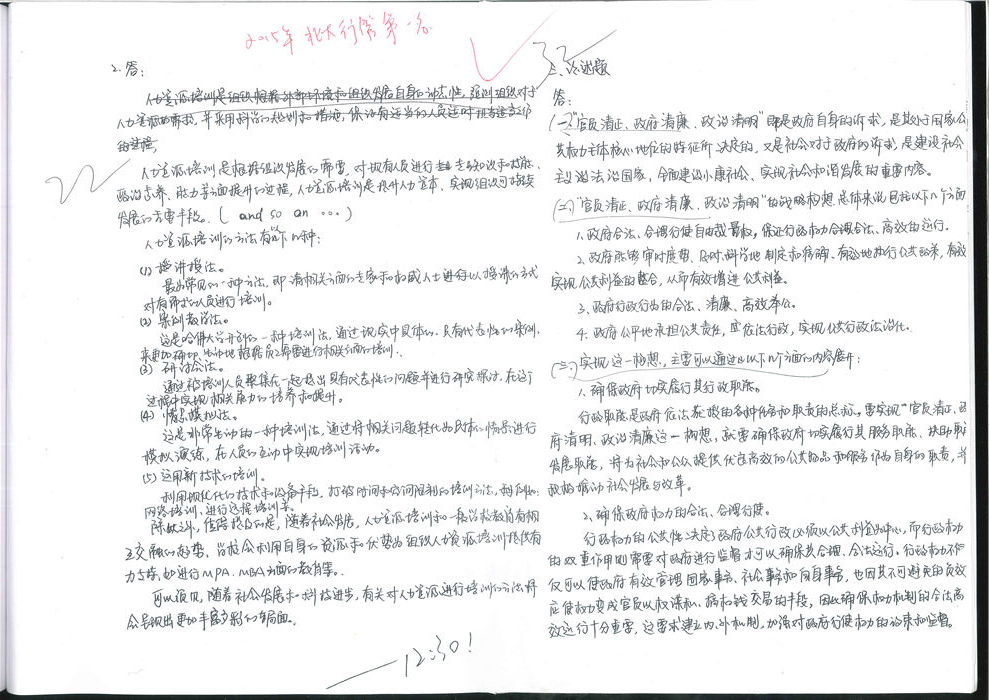 2015年 北大行管第一名
2.答:
人力资源培训是组织根据外部环境和组织发展自身的动态性,强调组织对于
人力资源的需求,并采用科学的规划和措施,保证有适当的人员适时担当适当工作
的过程,
22
人力资源培训是根据组织发展的需要,对现有人员进行专业知识和技能、
政治素养、能力等方面提升的过程,人力资源培训是提升人力资本、实现组织可持续
发展的重要手段。( and so on ...)
人力资源培训的方法有以下几种:
(1) 授讲授法。
最为常见的一种方法,即请相关方面的专家和权威人士进行以授课的方式
对有需求的人员进行培训。
(2) 案例教学法。
这是哈佛大学开创的一种培训法,通过现实中具体的、具有代表性的案例,
来更加确切、生动地根据员工需要进行相关方面的培训.
(3) 研讨会法。
通过将培训人员聚集在一起提出具有代表性的问题并进行研究探讨,在这个
过程中实现相关能力的培养和提升。
(4) 情景模拟法。
这是非常生动的一种培训法,通过将相关问题转化为具体的情景进行
模拟演练,在人员的互动中实现培训活动。
(5) 运用新技术的培训。
利用现代化的技术和设备手段,打破时间和空间限制的培训方法,
网络培训、进行远程培训等.
除此之外,值得提及的是,随着社会发展,人力资源培训和一般学校教育有相
互交融的趋势,学校会利用自身的资源和优势为组织人力资源培训提供有
力支撑,如进行MPA、MBA方面的教育等。
可以预见,随着社会发展和科技进步,有关对人力资源进行培训的方法,将
会呈现出更加丰富多彩的新局面。
12:30!
33
三、论述题
答:
(一)"官员清正、政府清廉、政治清明"即是政府自身的诉求,是其处于国家公
共权力主体核心地位的特征所决定的,又是社会对于政府的诉求,是建设社会
主义法治国家、全面建设小康社会、实现社会和谐发展的重要内容。
(二)"官员清正、政府清廉、政治清明"的战略构想总体来说包括以下几个方面
1、政府合法、合理行使自由裁量权,保证行政权力合理合法、高效的运行。
2、政府能够审时度势、及时、科学地制定和传输、有效地执行公共政策,有效
实现公共利益的整合,从而有效增进公共利益。
3、政府行政行为的合法、清廉、高效奉公。
4、政府公平地承担公共责任,应依法行政,实现公共行政法治化。
(三)实现这一构想,主要可以通过以下几个方面的内容展开:
1、确保政府切实履行其行政职能。
行政职能是政府应该承担的各种任务和职责的总称,要实现"官员清正、政
府清明、政治清廉这一构想,就要确保政府切实履行其服务职能、扶助职
发展职能,将为社会和公众提供优良高效的公共物品和服务作为自身的职责,并
积极推动社会发展与改革。
2、确保政府权力的合法、合理行使。
行政权力的公共性决定了政府公共行政必须以公共利益为中心,而行政权力
的双重作用则需要对政府进行监督才可以确保其合理、合法运行。行政权力不
仅可以使政府有效管理国家事务、社会事务和自身事务,也因其不可避免的负效
应使权力变成官员以权谋私、搞权钱交易的手段,因此确保权力机制的合法高
效运行十分重要,这需求建立内、外机制,加强对政府行使权力的约束和监督。